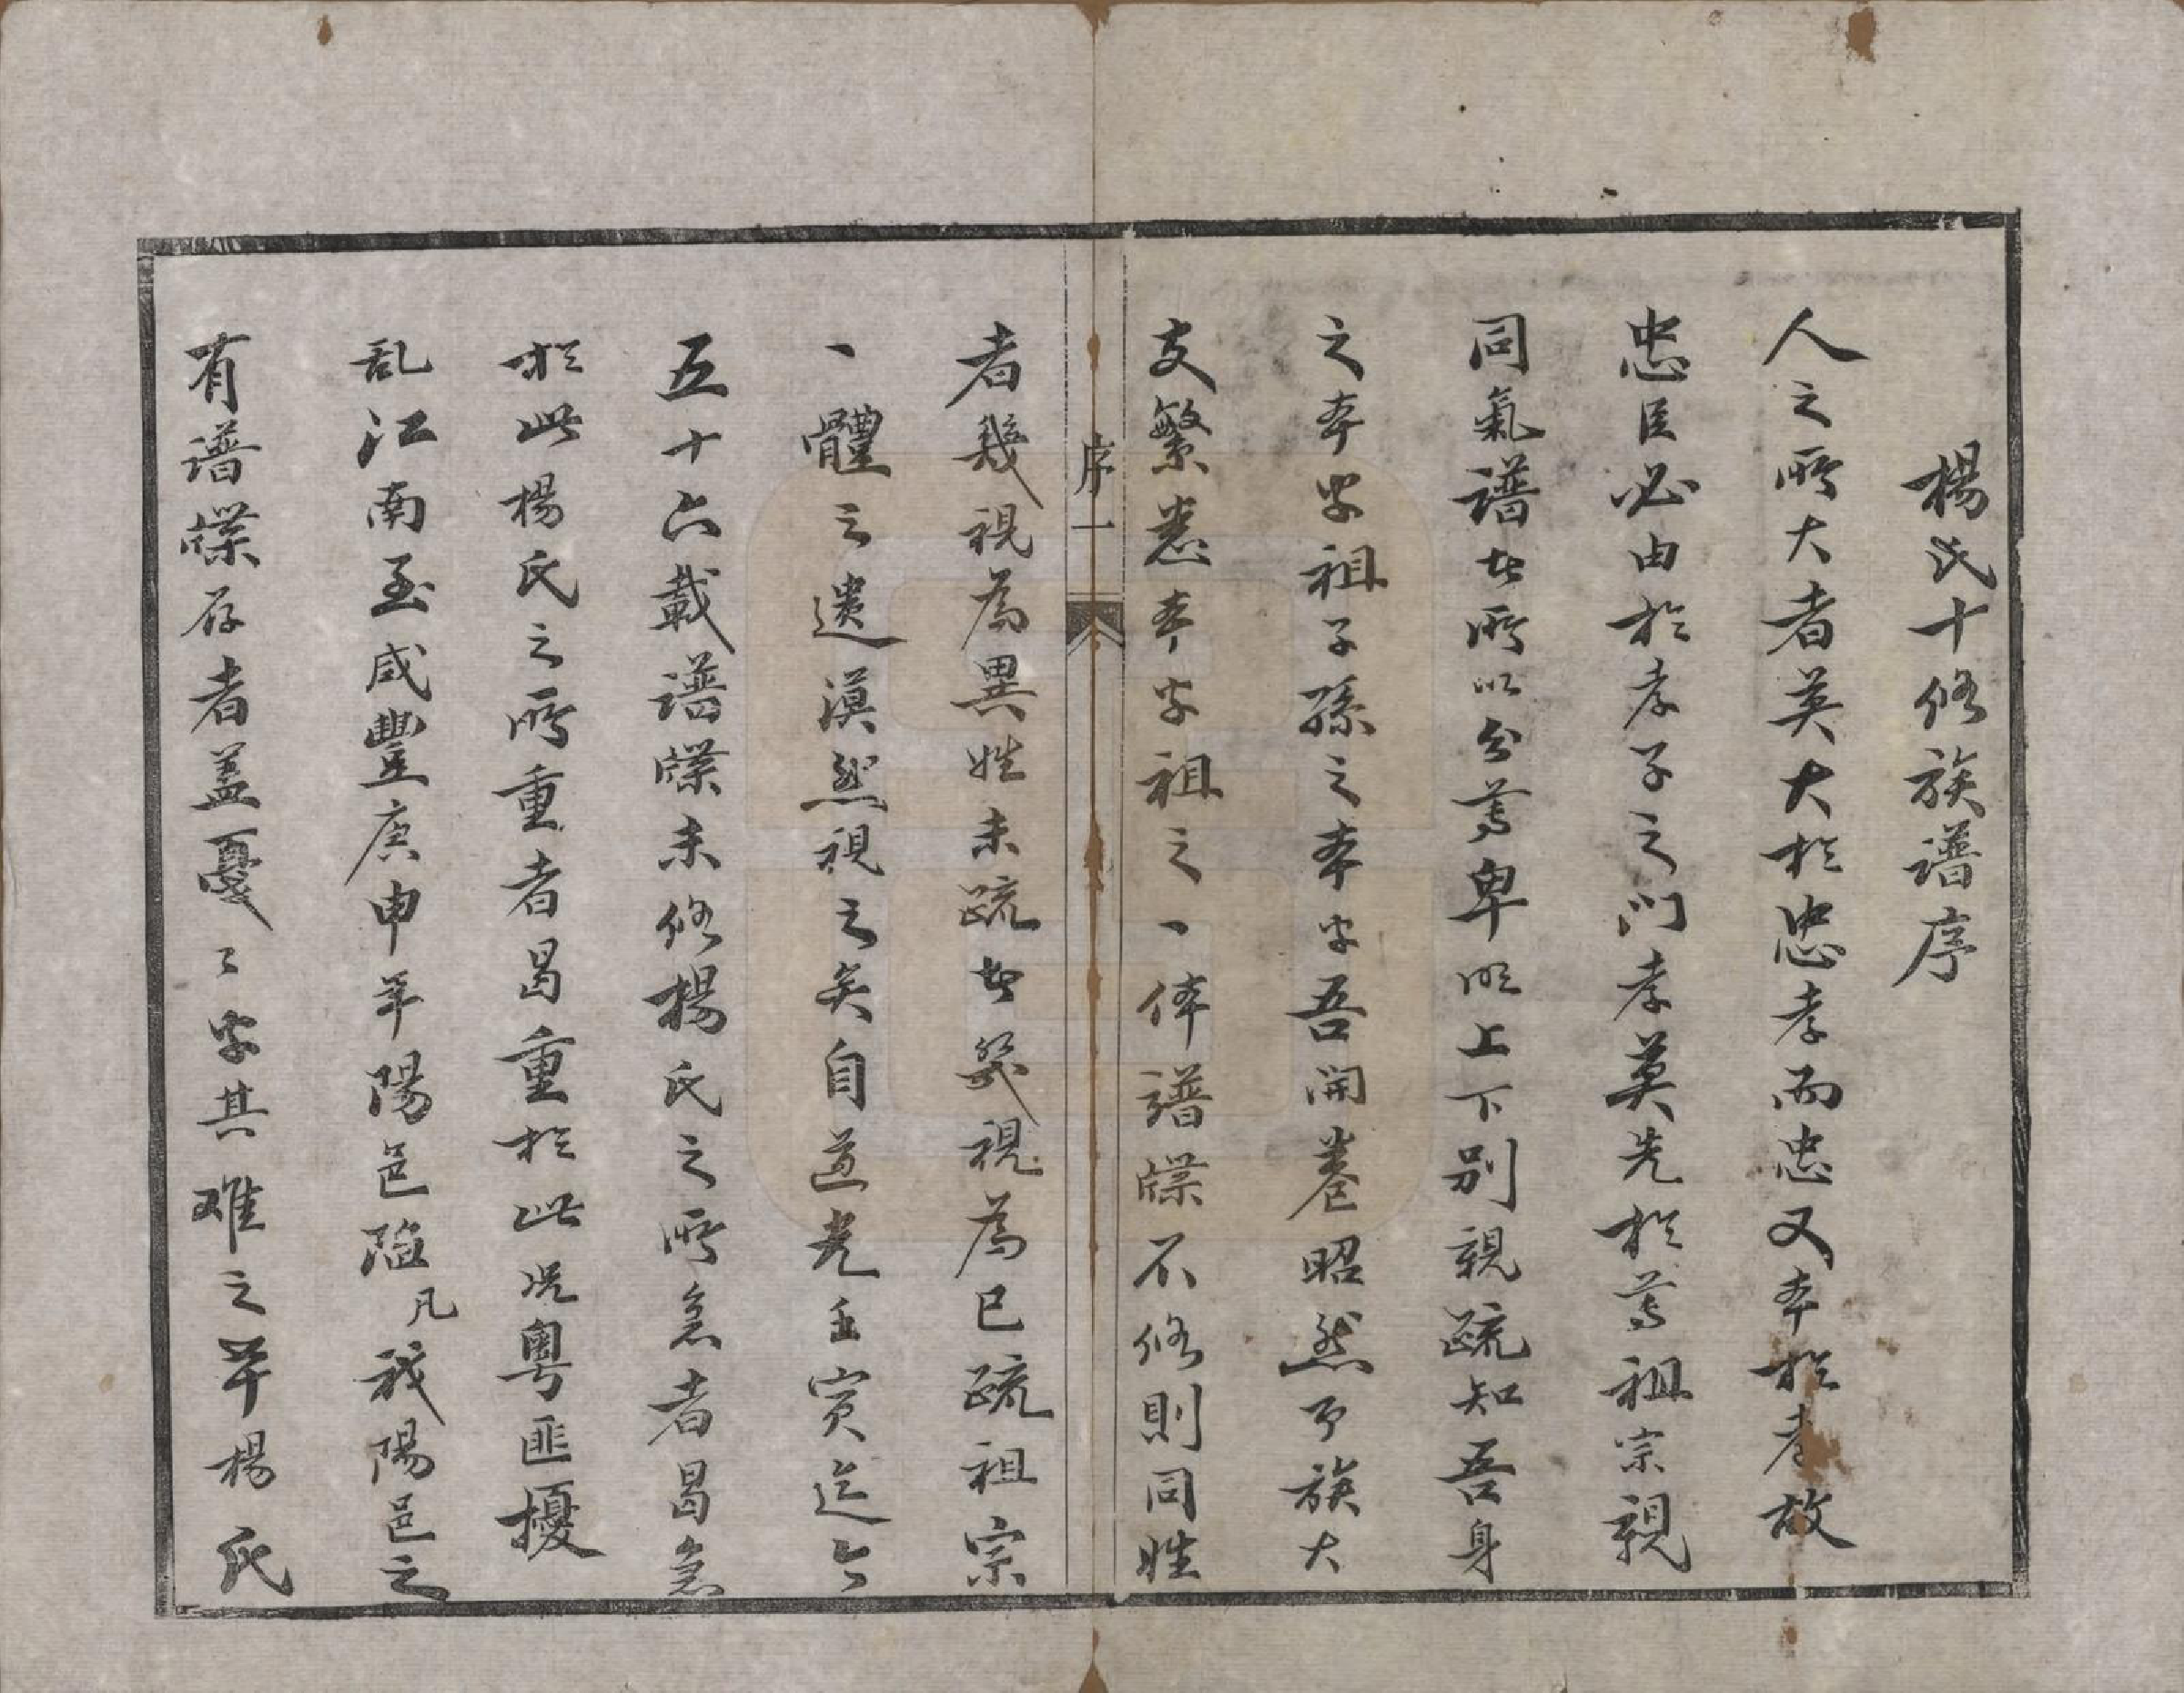 楊氏十修族譜序
人之所大者莫大於忠孝而忠又本於孝故
忠臣必由於孝子之门孝莫先於尊祖宗親
同氣譜者所以分尊卑明上下別親疏知吾身
之本乎祖子孫之本乎吾開卷昭然予族大
支繁悉本乎祖之一体譜牒不修則同姓
序一
者幾視為異姓未疏者幾視為已疏祖宗
一體之遺漠然視之矣自道光壬寅迄今
五十六載譜牒未修楊氏之所急者曷急
於此楊氏之所重者曷重於此况粤匪擾
乱江南至咸豐庚申年陽邑陷凡我陽邑之
有谱牒存者盖戛戛乎其难之矣楊氏